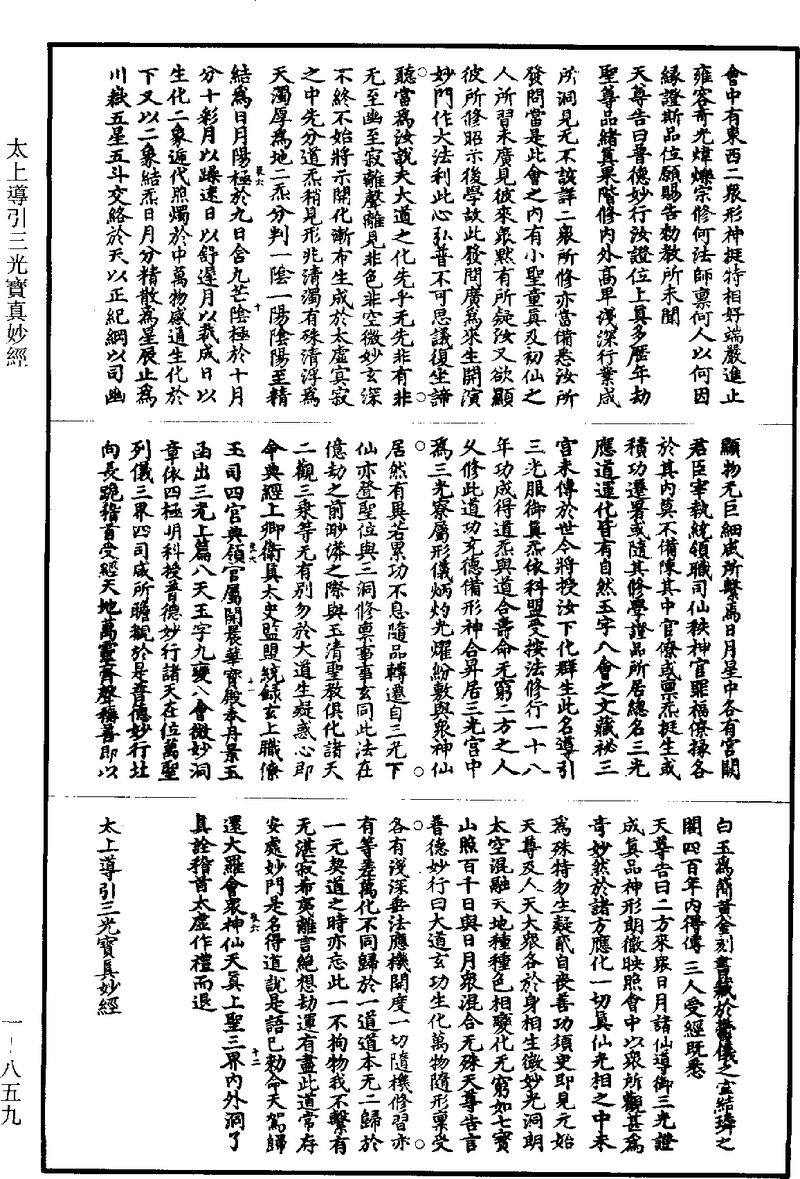 太上導引三光寶真妙經
會中有東西二衆形神挺特相好端嚴進止
雍容奇光煒爍宗修何法師禀何人以何因
緣證斯品位願賜告勑敎所未聞
天尊告曰普德妙行汝證位上真多歷年劫
聖尊品緒真果階修內外高卑淺深行業咸
所洞見无不該詳二衆所修亦當備悉汝所
發問當是此會之內有小聖童真及初仙之
人所習未廣見彼來衆默有所疑汝又欲顯
彼所修昭示後學故此發問廣爲來生開演
妙門作大法利此心弘普不可思議復坐諦
聽當爲汝說夫大道之化先乎无先非有非
无至幽至寂離聲離見非色非空微妙玄深
不終不始將示開化漸布生成於太虛寞寂
之中先分道炁稍見形兆清濁有殊清浮爲
天濁厚爲地二炁分判一陰一陽陰陽至精
結爲日月陽極於九日含九芒陰極於十月
分十彩月以躁速日以舒遲月以歲成日以
生化二象遞代照燭於中萬物感通生化於
下又以二象結炁日月分精散爲星辰止爲
川嶽五星五斗交絡於天以正紀綱以司幽
顯物无巨細咸所繫焉日月星中各有宮闕
君臣宰執統領職司仙秩神官罪福僚掾各
於其內莫不備陳其中官僚或禀炁挺生或
積功遷署或隨其修學證品所居總名三光
應道運化皆有自然玉字八會之文藏祕三
宮未傳於世今將授汝下化群生此名導引
三光服御真炁依科盟受按法修行一十八
年功成得道炁與道合壽命无窮二方之人
乂修此道功充德備形神合昇居三光宮中
爲三光寮屬形儀炳灼光耀紛敷與衆神仙
居然有異若累功不息隨品轉遷自三光下
仙亦登聖位與三洞修禀事事玄同此法在
億劫之前渺漭之際與玉清聖教俱化諸天
二觀三乘等无有別勿於大道生疑惑心即
命典經上卿衛真太史監盟統錄玄上職僚
玉司四官典領官屬開晨華寶殿奉丹景玉
函出三光上篇八天玉字九變八會微妙洞
章依四極明科授普德妙行諸天在位萬聖
列儀三界四司咸所瞻觀於是普德妙行北
向長跪稽首受經天地萬靈齊聲稱善即以
白玉爲簡黃金刻書藏於鬱儀之宮結璘之
闕四百年內得傳三人受經既悉
天尊告曰二方來衆日月諸仙導御三光證
成真品神形朗徹映照會中以衆所觀甚爲
奇妙然於諸方應化一切真仙光相之中未
爲殊特勿生疑貳自喪善功須臾即見元始
天尊及人天大衆各於身相生微妙光洞朗
太空混融天地種種色相變化无窮如七寶
山照百千日與日月衆混合无殊天尊告言
普德妙行曰大道玄功生化萬物隨形禀受
各有淺深垂法應機開度一切隨機修習亦
有等差萬化不同歸於一道道本无二歸於
一元契道之時亦忘此一不拘物我不繫有
无湛寂希夷離言絶想劫運有盡此道常存
安處妙門是名得道說是語已勑命天駕歸
還大羅會衆神仙天真上聖三界內外洞了
真詮稽首太虛作禮而退
太上導引三光寶真妙經
一-八五九